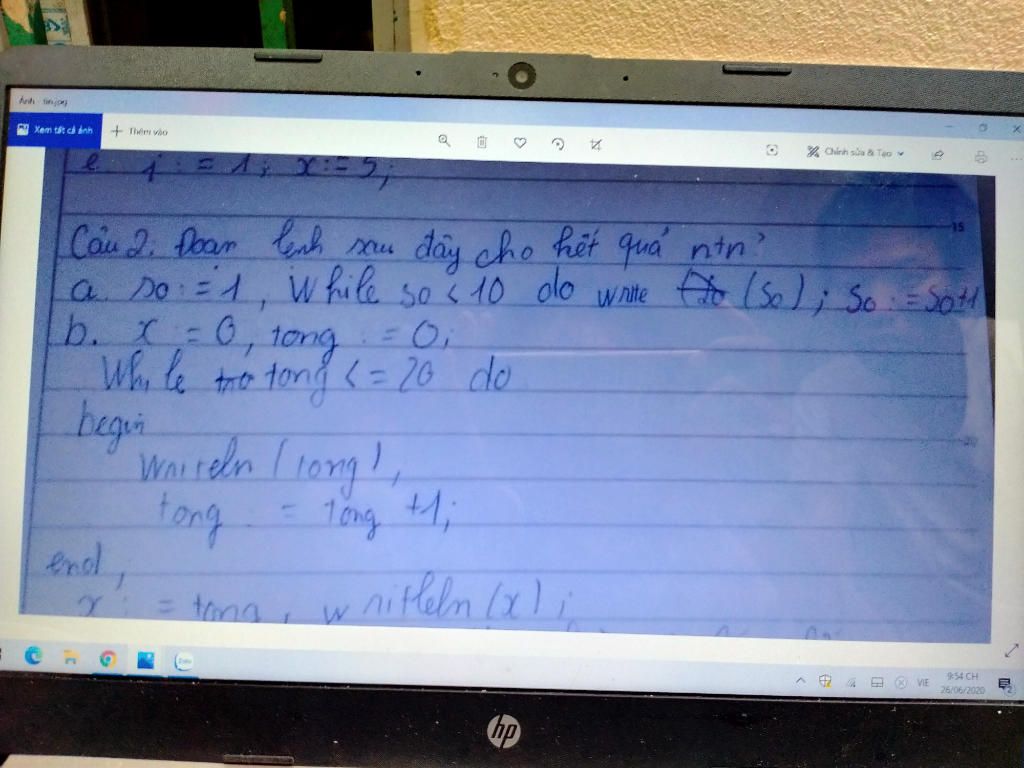 Ảnh - tin.jpg
Xem tất cả ảnh
+ Thêm vào
Chỉnh sửa & Tạo
e. j := 1; x := 5;
15
Câu 2: Đoạn lệnh sau đây cho kết quả ntn?
a. so := 1, While so < 10 do write (so); so := so+1
b. x := 0, tong := 0;
While tong <= 20 do
begin
Writeln (tong),
tong := tong +1;
end,
x := tong, writleln (x);
Zalo
VIE
9:54 CH
26/06/2020
2
hp